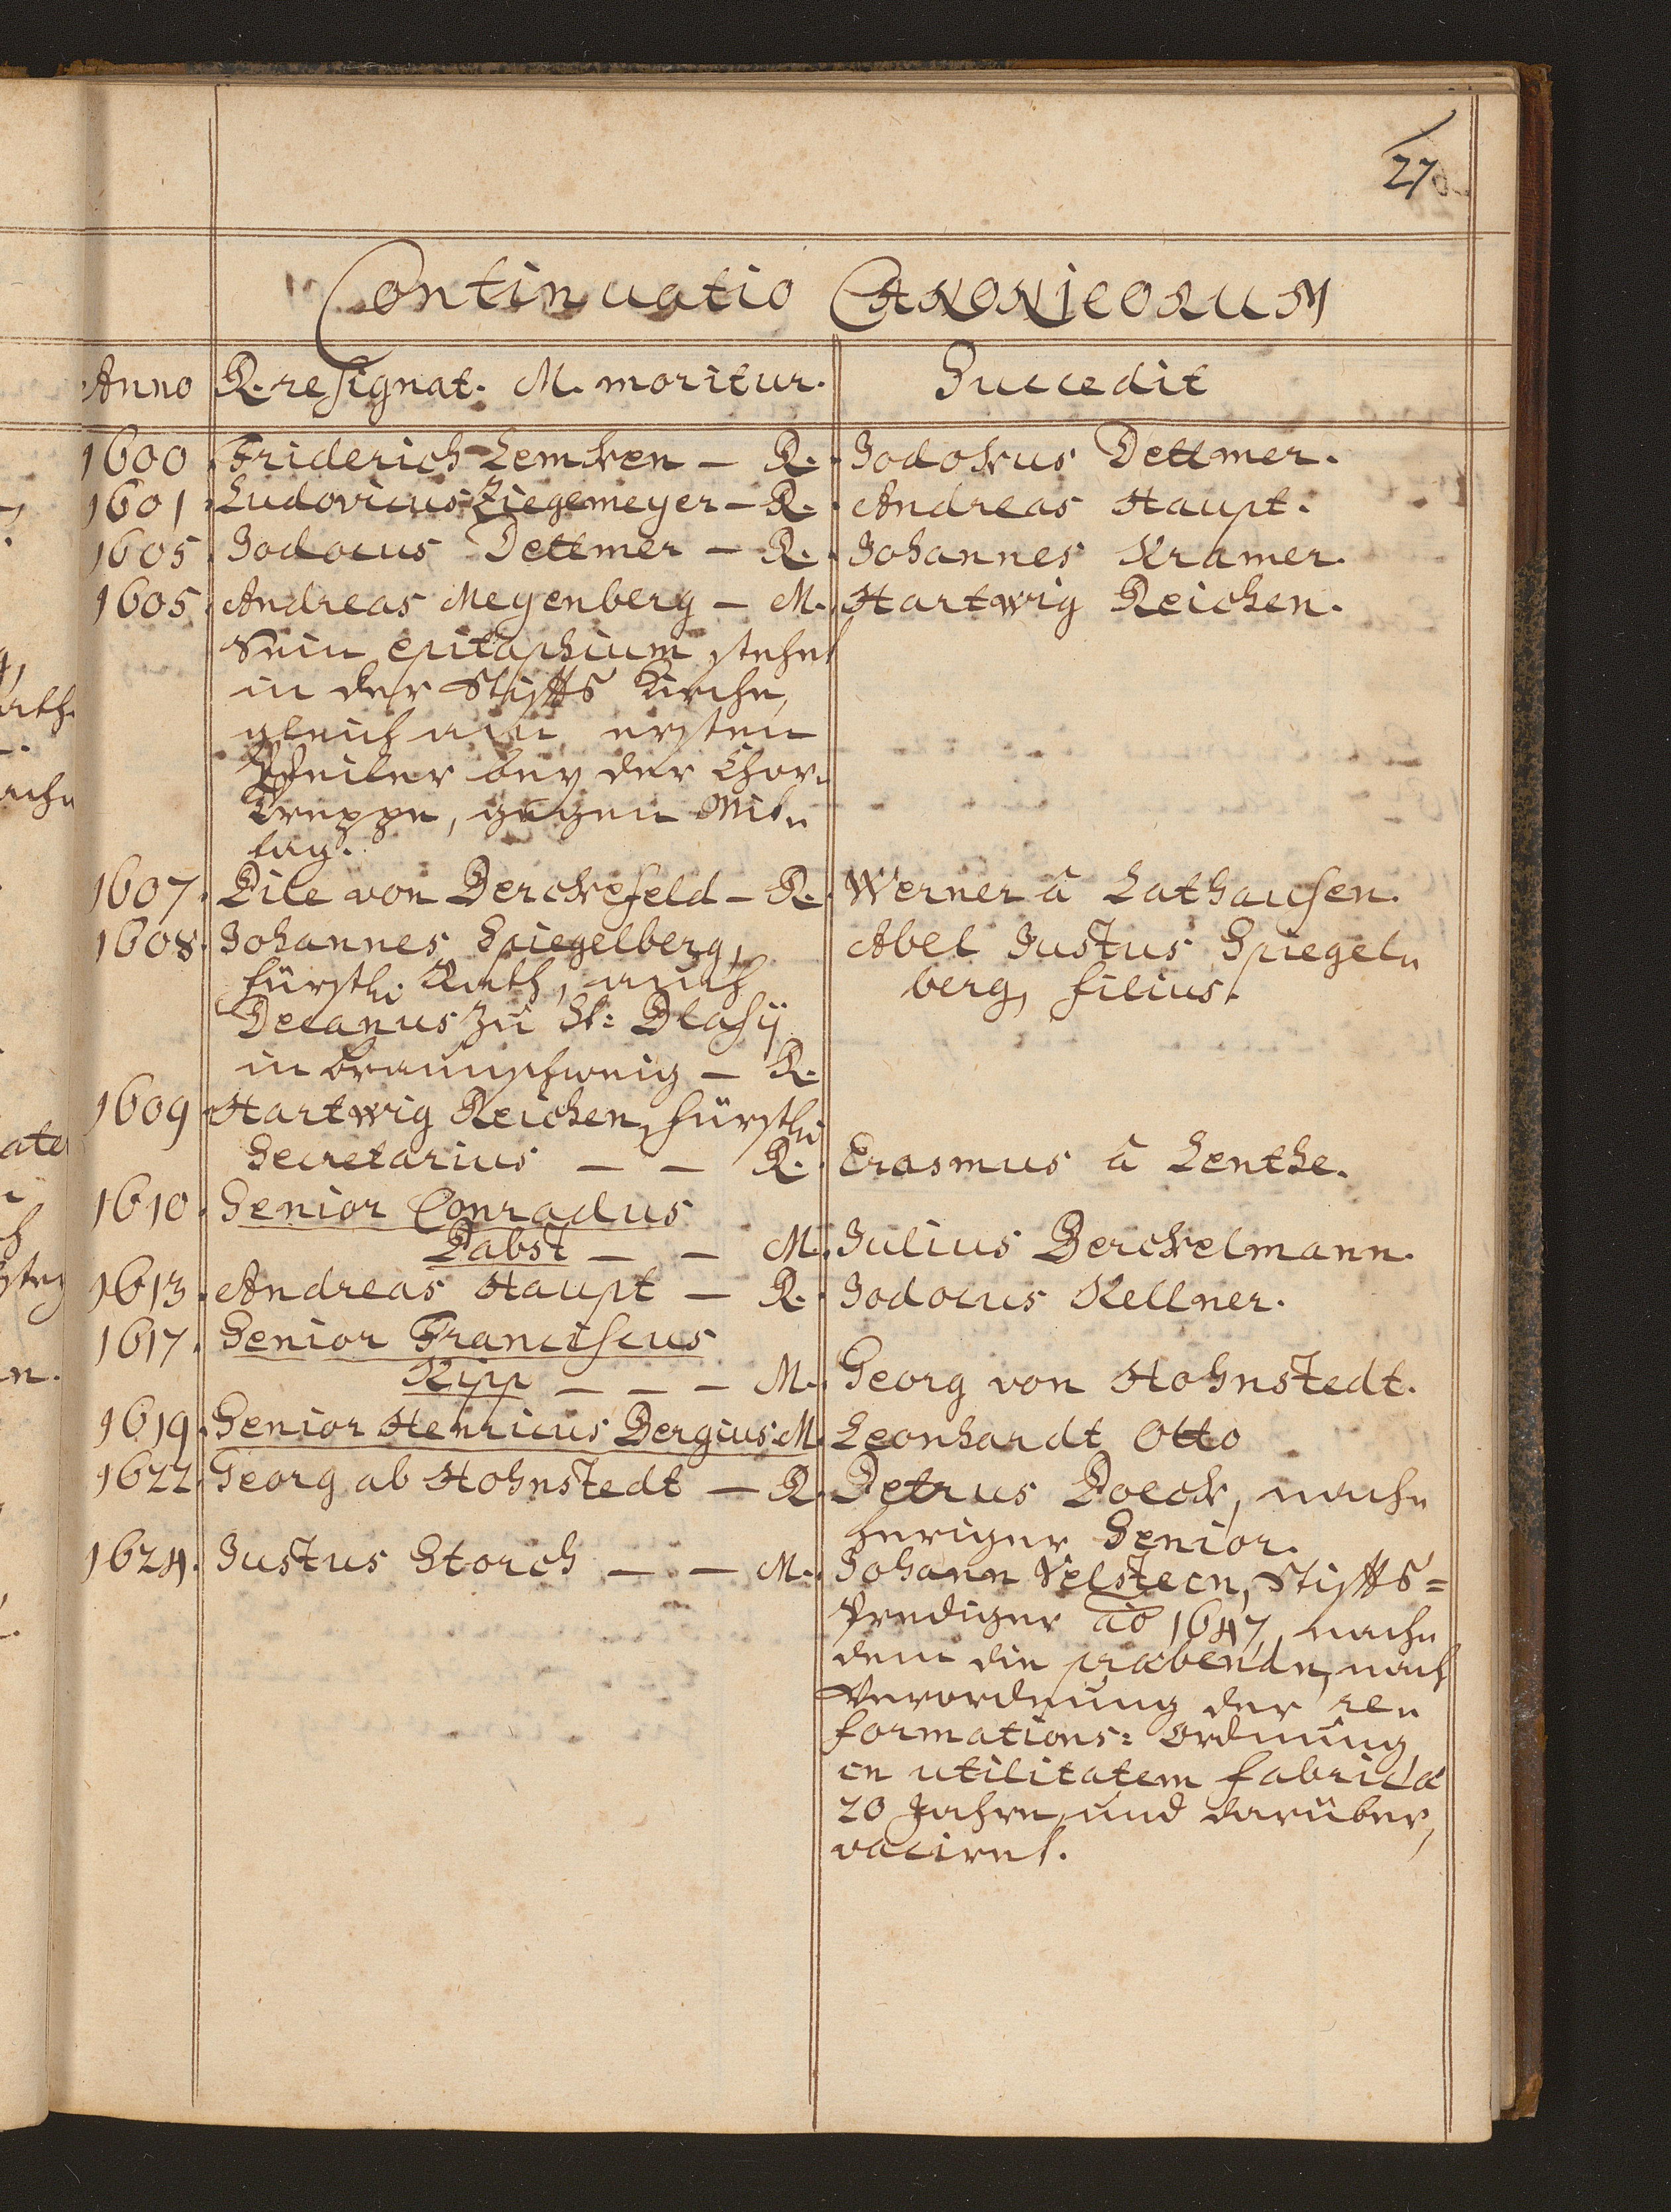 27
Continuatio CANONICORUM
Anno R. resignat. M. moritur. Succedit
1600 Friderich Lemken – R. Jodokus Dettmer.
1601. Ludovicus Ziegemeyer – R. Andreas Haupt.
1605. Jodocus Dettmer – R. Johannes Kramer.
1605. Andreas Meyenberg – M. Hartwig Reichen.
Sein epitaphium stehet
in der Stiffts Kirche,
gleich am ersten
Pfeiler bey der Chor-
Treppe, gegen Mit-
tag.
1607. Dile von Berckefeld – R. Werner â Lathausen.
1608. Johannes Spiegelberg, Abel Justus Spiegel-
fürstl. Rath, auch berg, filius.
Decanus zu St: Blasij
in Braunschweig – R.
1609. Hartwig Reichen, fürstl.
Secretarius – – R. Erasmus â Lenthe.
1610. Senior Conradus
Pabst – – M. Julius Berckelmann.
1613. Andreas Haupt – R. Jodocus Kellner.
1617. Senior Franciscus
Kipp – – – M. Georg von Hohnstedt.
1619. Senior Henricus Bergius M. Leonhardt Otto
1622. Georg ab Hohnstedt – R. Petrus Poeck, nach-
heriger Senior.
1624. Justus Storch – – M. Johann Velstein, Stiffts=
Prediger ao 1647, nach-
dem die præbende, nach
Verordnung der re-
formations: Ordnung
in utilitatem fabricæ
20 Jahre und darüber,
vaciret.